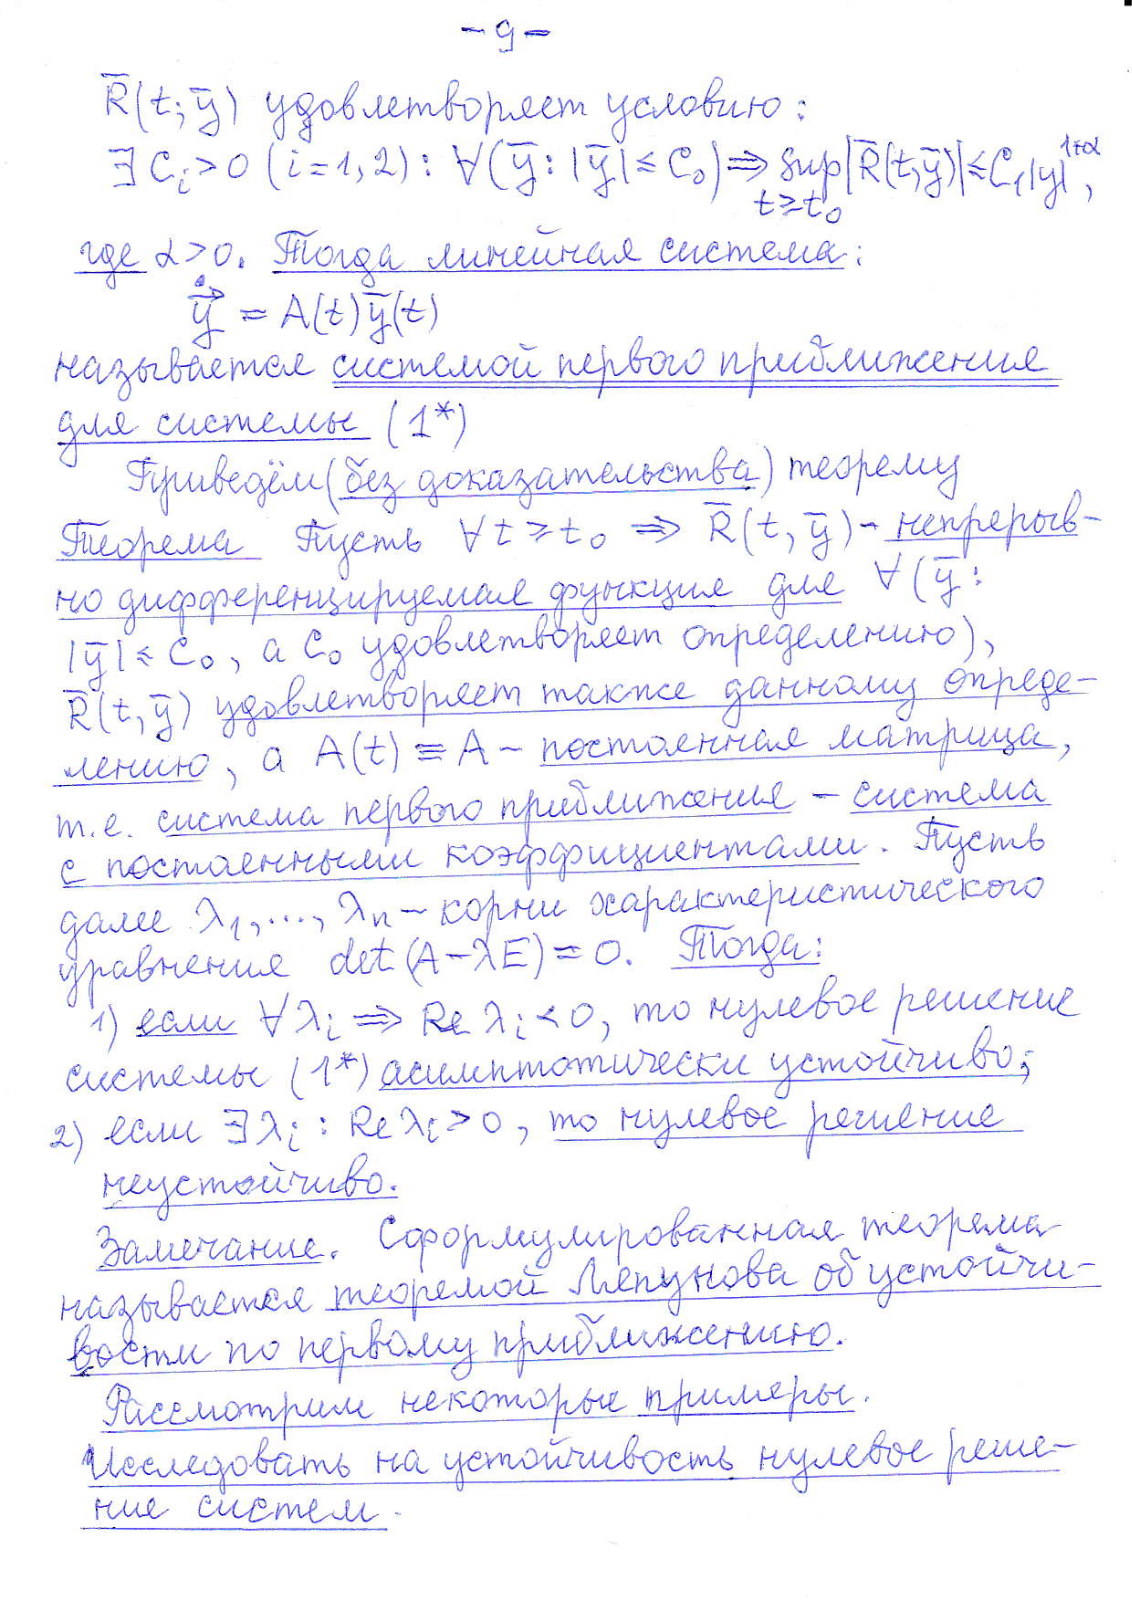 - 9 -
R̄(t; ȳ) удовлетворяет условию:
∃ Cᵢ > 0 (i = 1, 2) : ∀(ȳ : |ȳ| ≤ C₀) ⇒ sup|R̄(t, ȳ)| ≤ C₁|y|¹⁺ᵅ,
t ≥ t₀
где α > 0. Тогда линейная система:
ẏ⃗ = A(t)ȳ(t)
называется системой первого приближения
для системы (1*)
Приведём (без доказательства) теорему
Теорема Пусть ∀t ≥ t₀ ⇒ R̄(t, ȳ) - непрерыв-
но дифференцируемая функция для ∀(ȳ :
|ȳ| ≤ C₀, а C₀ удовлетворяет определению),
R̄(t, ȳ) удовлетворяет также данному опреде-
лению, а A(t) ≡ A - постоянная матрица,
т.е. система первого приближения - система
с постоянными коэффициентами. Пусть
далее λ₁, ..., λₙ - корни характеристического
уравнения det(A - λE) = 0. Тогда:
1) если ∀λᵢ ⇒ Re λᵢ < 0, то нулевое решение
системы (1*) асимптотически устойчиво;
2) если ∃λᵢ : Re λᵢ > 0, то нулевое решение
неустойчиво.
Замечание. Сформулированная теорема
называется теоремой Ляпунова об устойчи-
вости по первому приближению.
Рассмотрим некоторые примеры.
Исследовать на устойчивость нулевое реше-
ние систем.